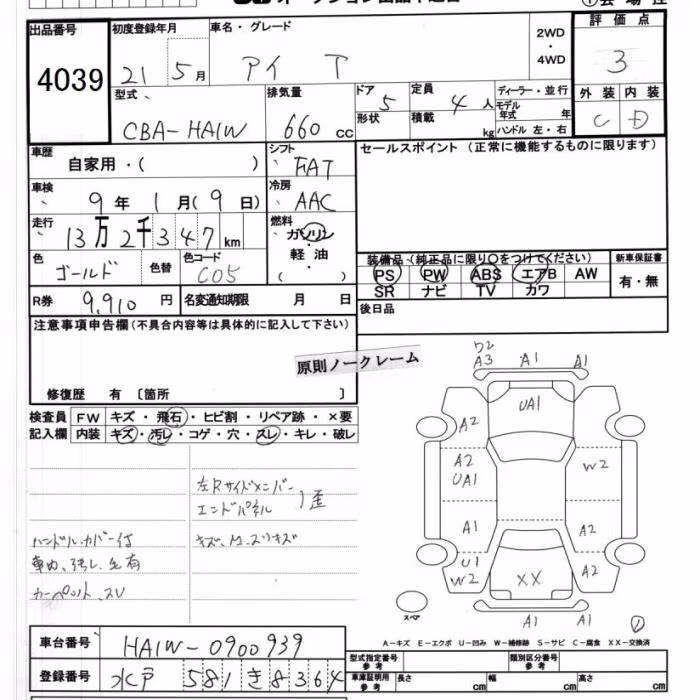 出品番号 4039
初度登録年月 21 5月
車名・グレード アイ T
2WD・4WD
評価点 3
型式 CBA-HA1W
排気量 660 cc
ドア 5 形状
定員 4人
積載 kg
ディーラー・並行
モデル年式 年
ハンドル 左・右
外装 C 内装 D
車歴 自家用・( )
シフト FAT
セールスポイント (正常に機能するものに限ります)
車検 9年1月(9日)
冷房 AAC
走行 13万2千347km
燃料 ガソリン 軽油・( )
色 ゴールド 色替
色コード C05
装備品 (純正品に限り○をつけてください)
新車保証書
PS PW ABS エアB AW
SR ナビ TV カワ
有・無
R券 9,910円
名変通知期限 月 日
後日品
注意事項申告欄(不具合内容等は具体的に記入して下さい)
原則ノークレーム
修復歴 有 〔箇所 〕
検査員記入欄
FW キズ・飛石・ヒビ割・リペア跡・×要
内装 キズ・汚レ・コゲ・穴・スレ・キレ・破レ
左Rサイドメンバー
エンドパネル 歪
ハンドル、カバー付
キズ、凹、スリキズ
カーペット、スレ
W2
A3 A1 A1
UA1
A2
A2
UA1
W2
A1
A2
U1
W2
XX
A2
A1 A1
スペア
A-キズ E-エクボ U-凹み W-補修跡 S-サビ C-腐食 XX-交換済
車台番号 HA1W-0900939
登録番号 水戸 581 き 8364
型式指定番号 参考
類別区分番号 参考
車庫証明用 参考 長さ cm 幅 cm 高さ cm